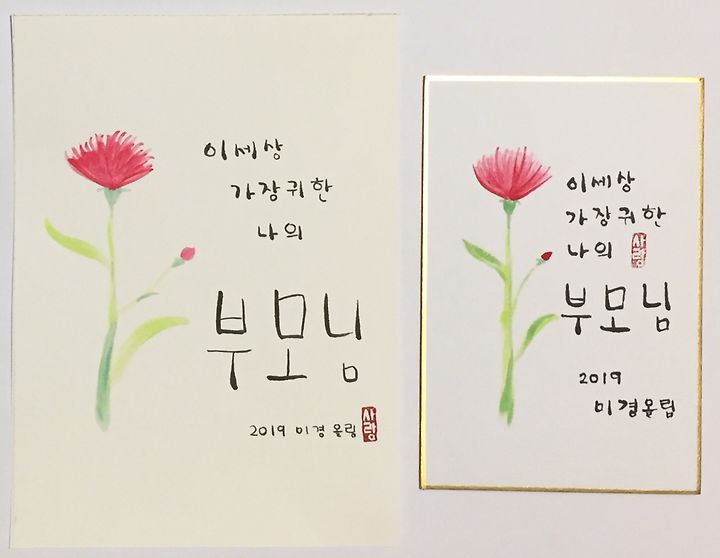 이세상
가장귀한
나의
부모님
2019 미경 올림
사랑
이세상
가장귀한
나의
사랑
부모님
2019
미경올림